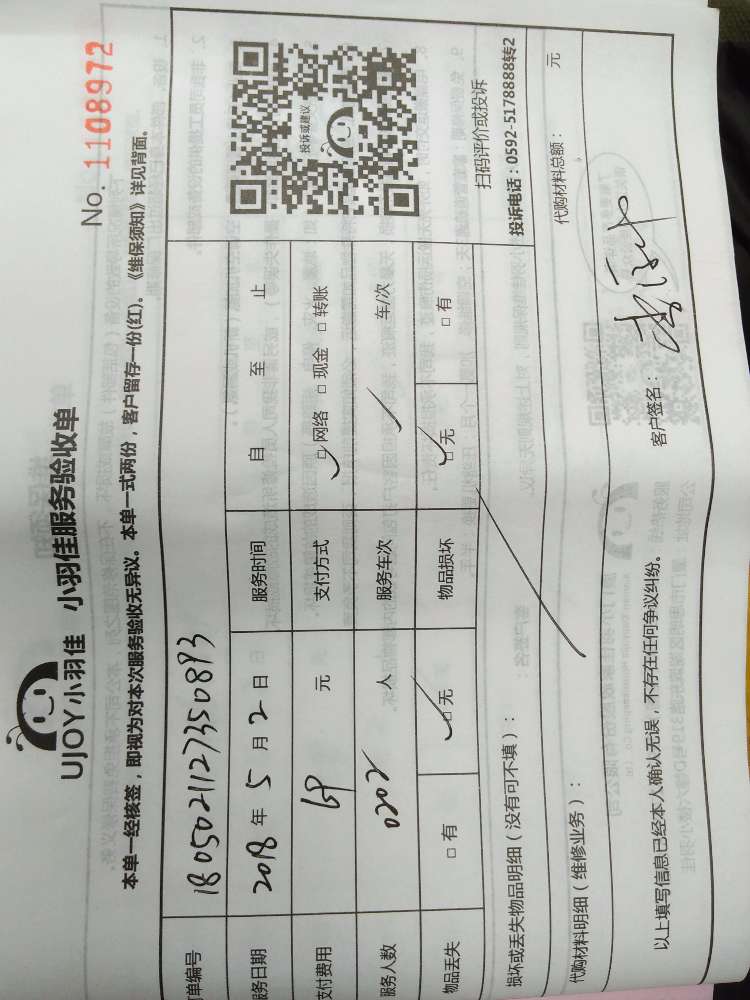 UJOY小羽佳 小羽佳服务验收单
No. 1108972
本单一经核签，即视为对本次服务验收无异议。本单一式两份，客户留存一份(红)。《维保须知》详见背面。
单编号 180502112735089
服务日期 2018 年 5 月 2 日 服务时间 自 至 止
支付费用 元 支付方式 ☑网络 □现金 □转账
服务人数 0202 人 服务车次 车/次
物品丢失 □有 ☑无 物品损坏 ☑无 □有
投诉或建议
扫码评价或投诉
投诉电话：0592-5178888转2
损坏或丢失物品明细（没有可不填）：
代购材料明细（维修业务）： 代购材料总额： 元
以上填写信息已经本人确认无误，不存在任何争议纠纷。 客户签名：